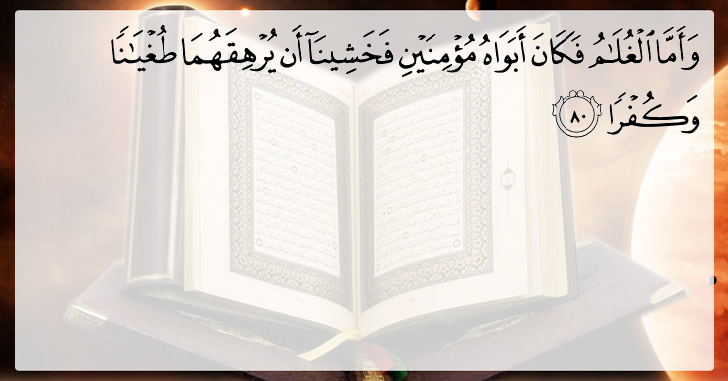 وَأَمَّا ٱلْغُلَـٰمُ فَكَانَ أَبَوَاهُ مُؤْمِنَيْنِ فَخَشِينَآ أَن يُرْهِقَهُمَا طُغْيَـٰنًا
وَكُفْرًا ٨٠